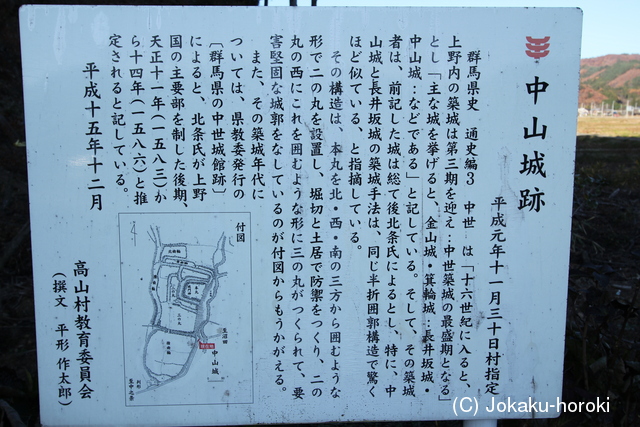 中山城跡
平成元年十一月三十日村指定
群馬県史 通史編3 中世 は「十六世紀に入ると、
上野内の築城は第三期を迎え…中世築城の最盛期となる」
とし「主な城を挙げると、金山城・箕輪城…長井坂城・
中山城…などである」と記している。そして、その築城
者は、前記した城は総て後北条氏によるとし、特に、中
山城と長井坂城の築城手法は、同じ半折囲郭構造で驚く
ほど似ている、と指摘している。
その構造は、本丸を北・西・南の三方から囲むような
形で二の丸を設置し、堀切と土居で防禦をつくり、二の
丸の西にこれを囲むような形に三の丸がつくられて、要
害堅固な城郭をなしているのが付図からもうかがえる。
また、その築城年代に
ついては、県教委発行の
〔群馬県の中世城館跡〕
によると、北条氏が上野
国の主要部を制した後期、
天正十一年(一五八三)か
ら十四年(一五八六)と推
定されると記している。
平成十五年十二月
高山村教育委員会
(撰文 平形 作太郎)
付図
中山城
(C) Jokaku-horoki